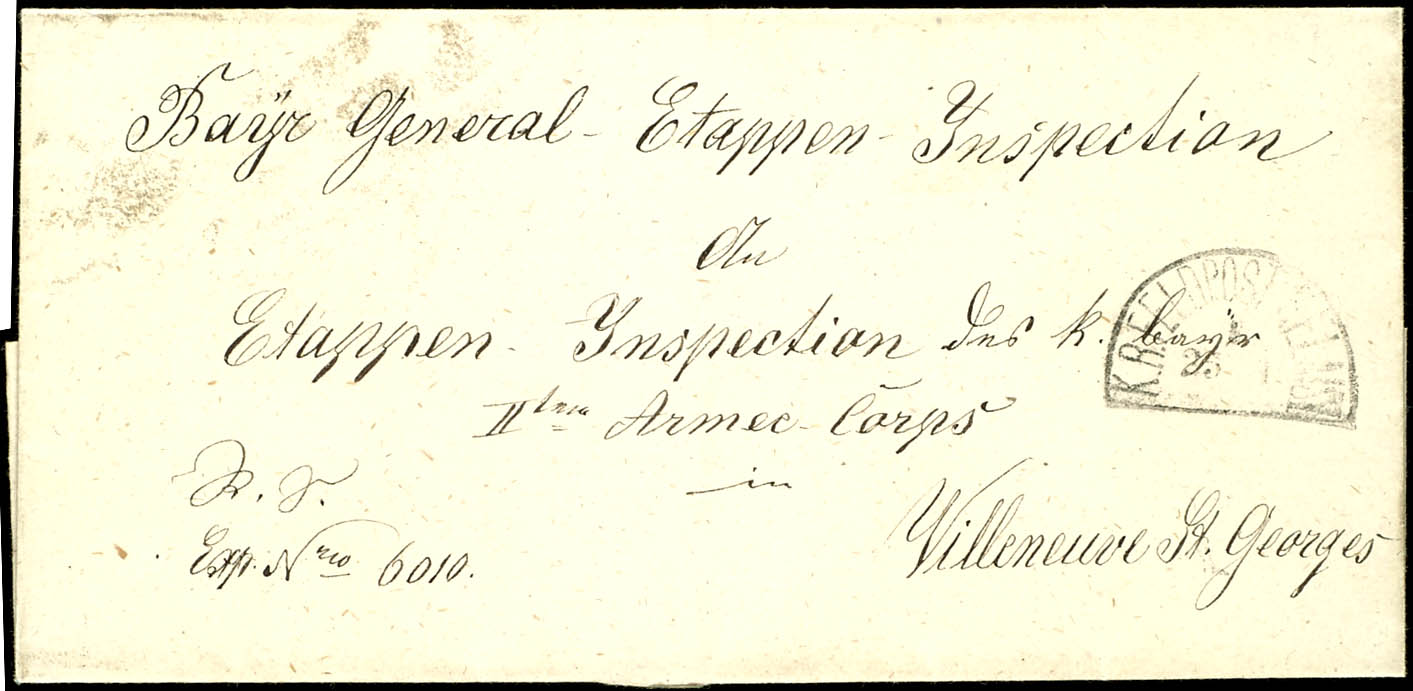 Bayr General - Etappen - Inspection
An
Etappen - Inspection des k. bayr
II ten Armee - Corps
in
Villeneuve St. Georges
R. S.
Exp. Nro 6010.
K.B. FELDPOST